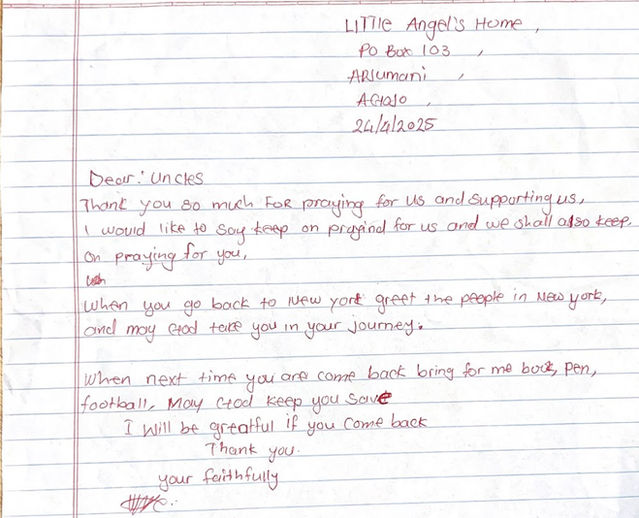 LITTle Angel's Home,
PO Box 103,
ARJumani,
AGIOJO,
24/4/2025
Dear: Uncles
Thank you so much FoR praying for us and supporting us,
I would like to say keep on prayind for us and we shall also keep
on praying for you,
When you go back to New york greet the people in New york,
and may God take you in your journey.
When next time you are come back bring for me book, pen,
football, May God keep you save
I will be greatful if you come back
Thank you.
your faithfully